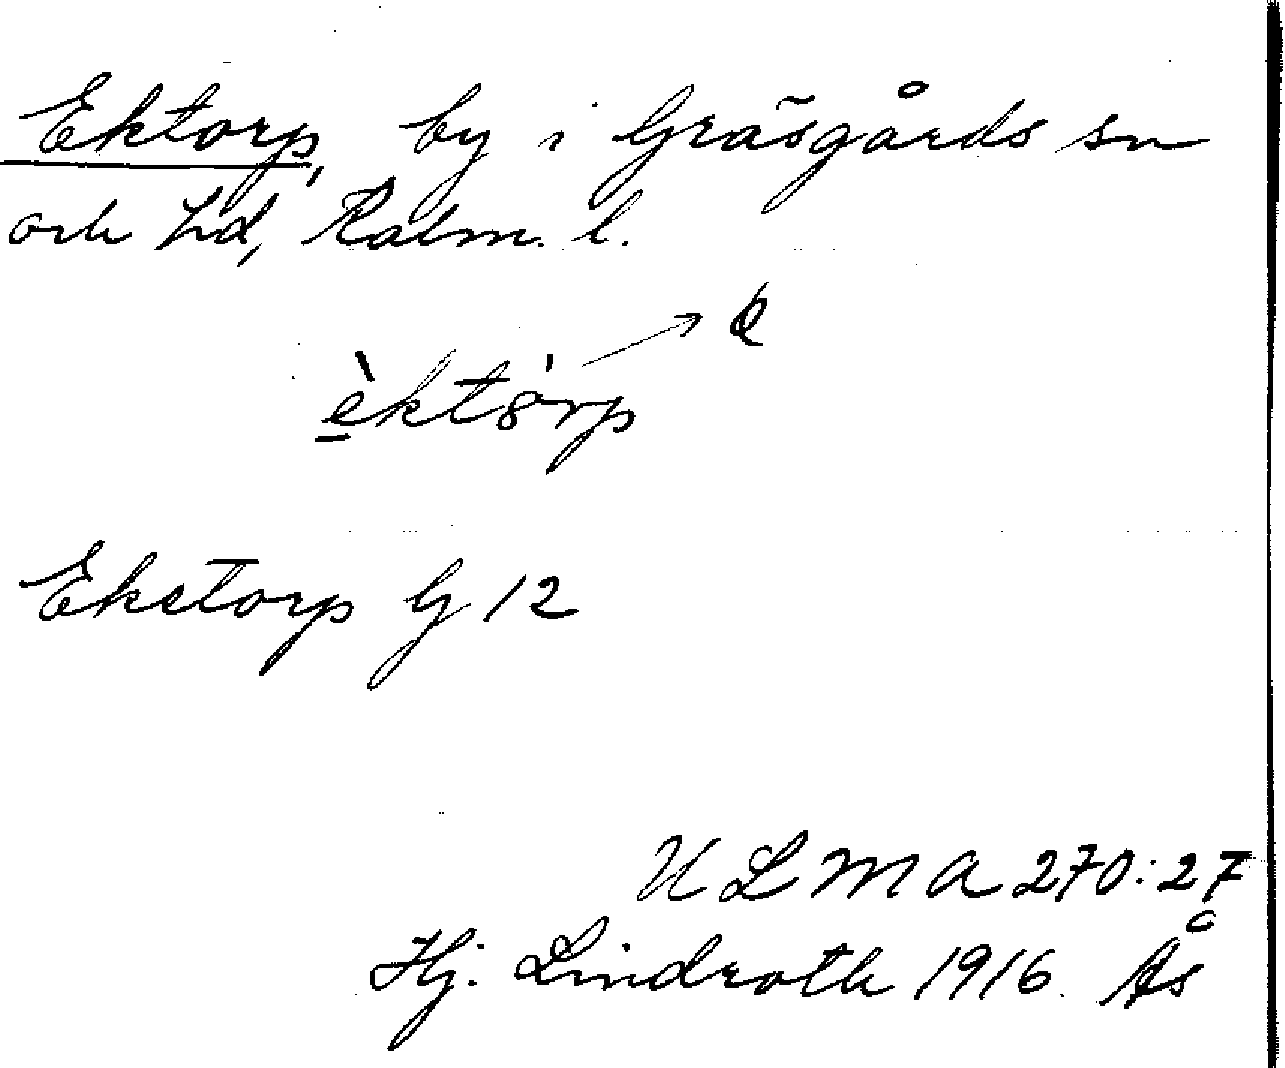 Ektorp, by i Gräsgårds sn
och hd, Kalm. l.
Ekstorp G 12
ULMA 270:27
Hj. Lindroth 1916. Ås